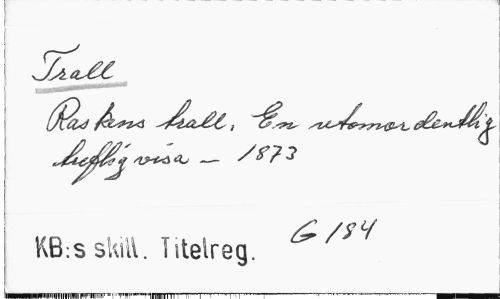 Trall
Raskens trall. En utomordentlig
treflig visa – 1873
G 184
KB:s skill. Titelreg.